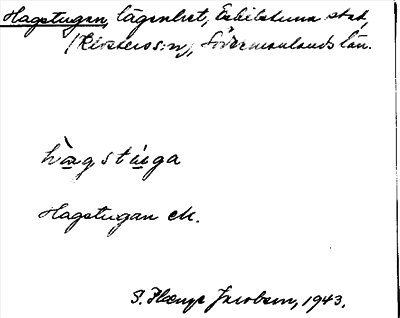 Hagstugan, lägenhet, Eskilstuna stad,
(Klosters s:n), Södermanlands län.
hàgstùga
Hagstugan EK.
S. Flæng Jacobsen, 1943.